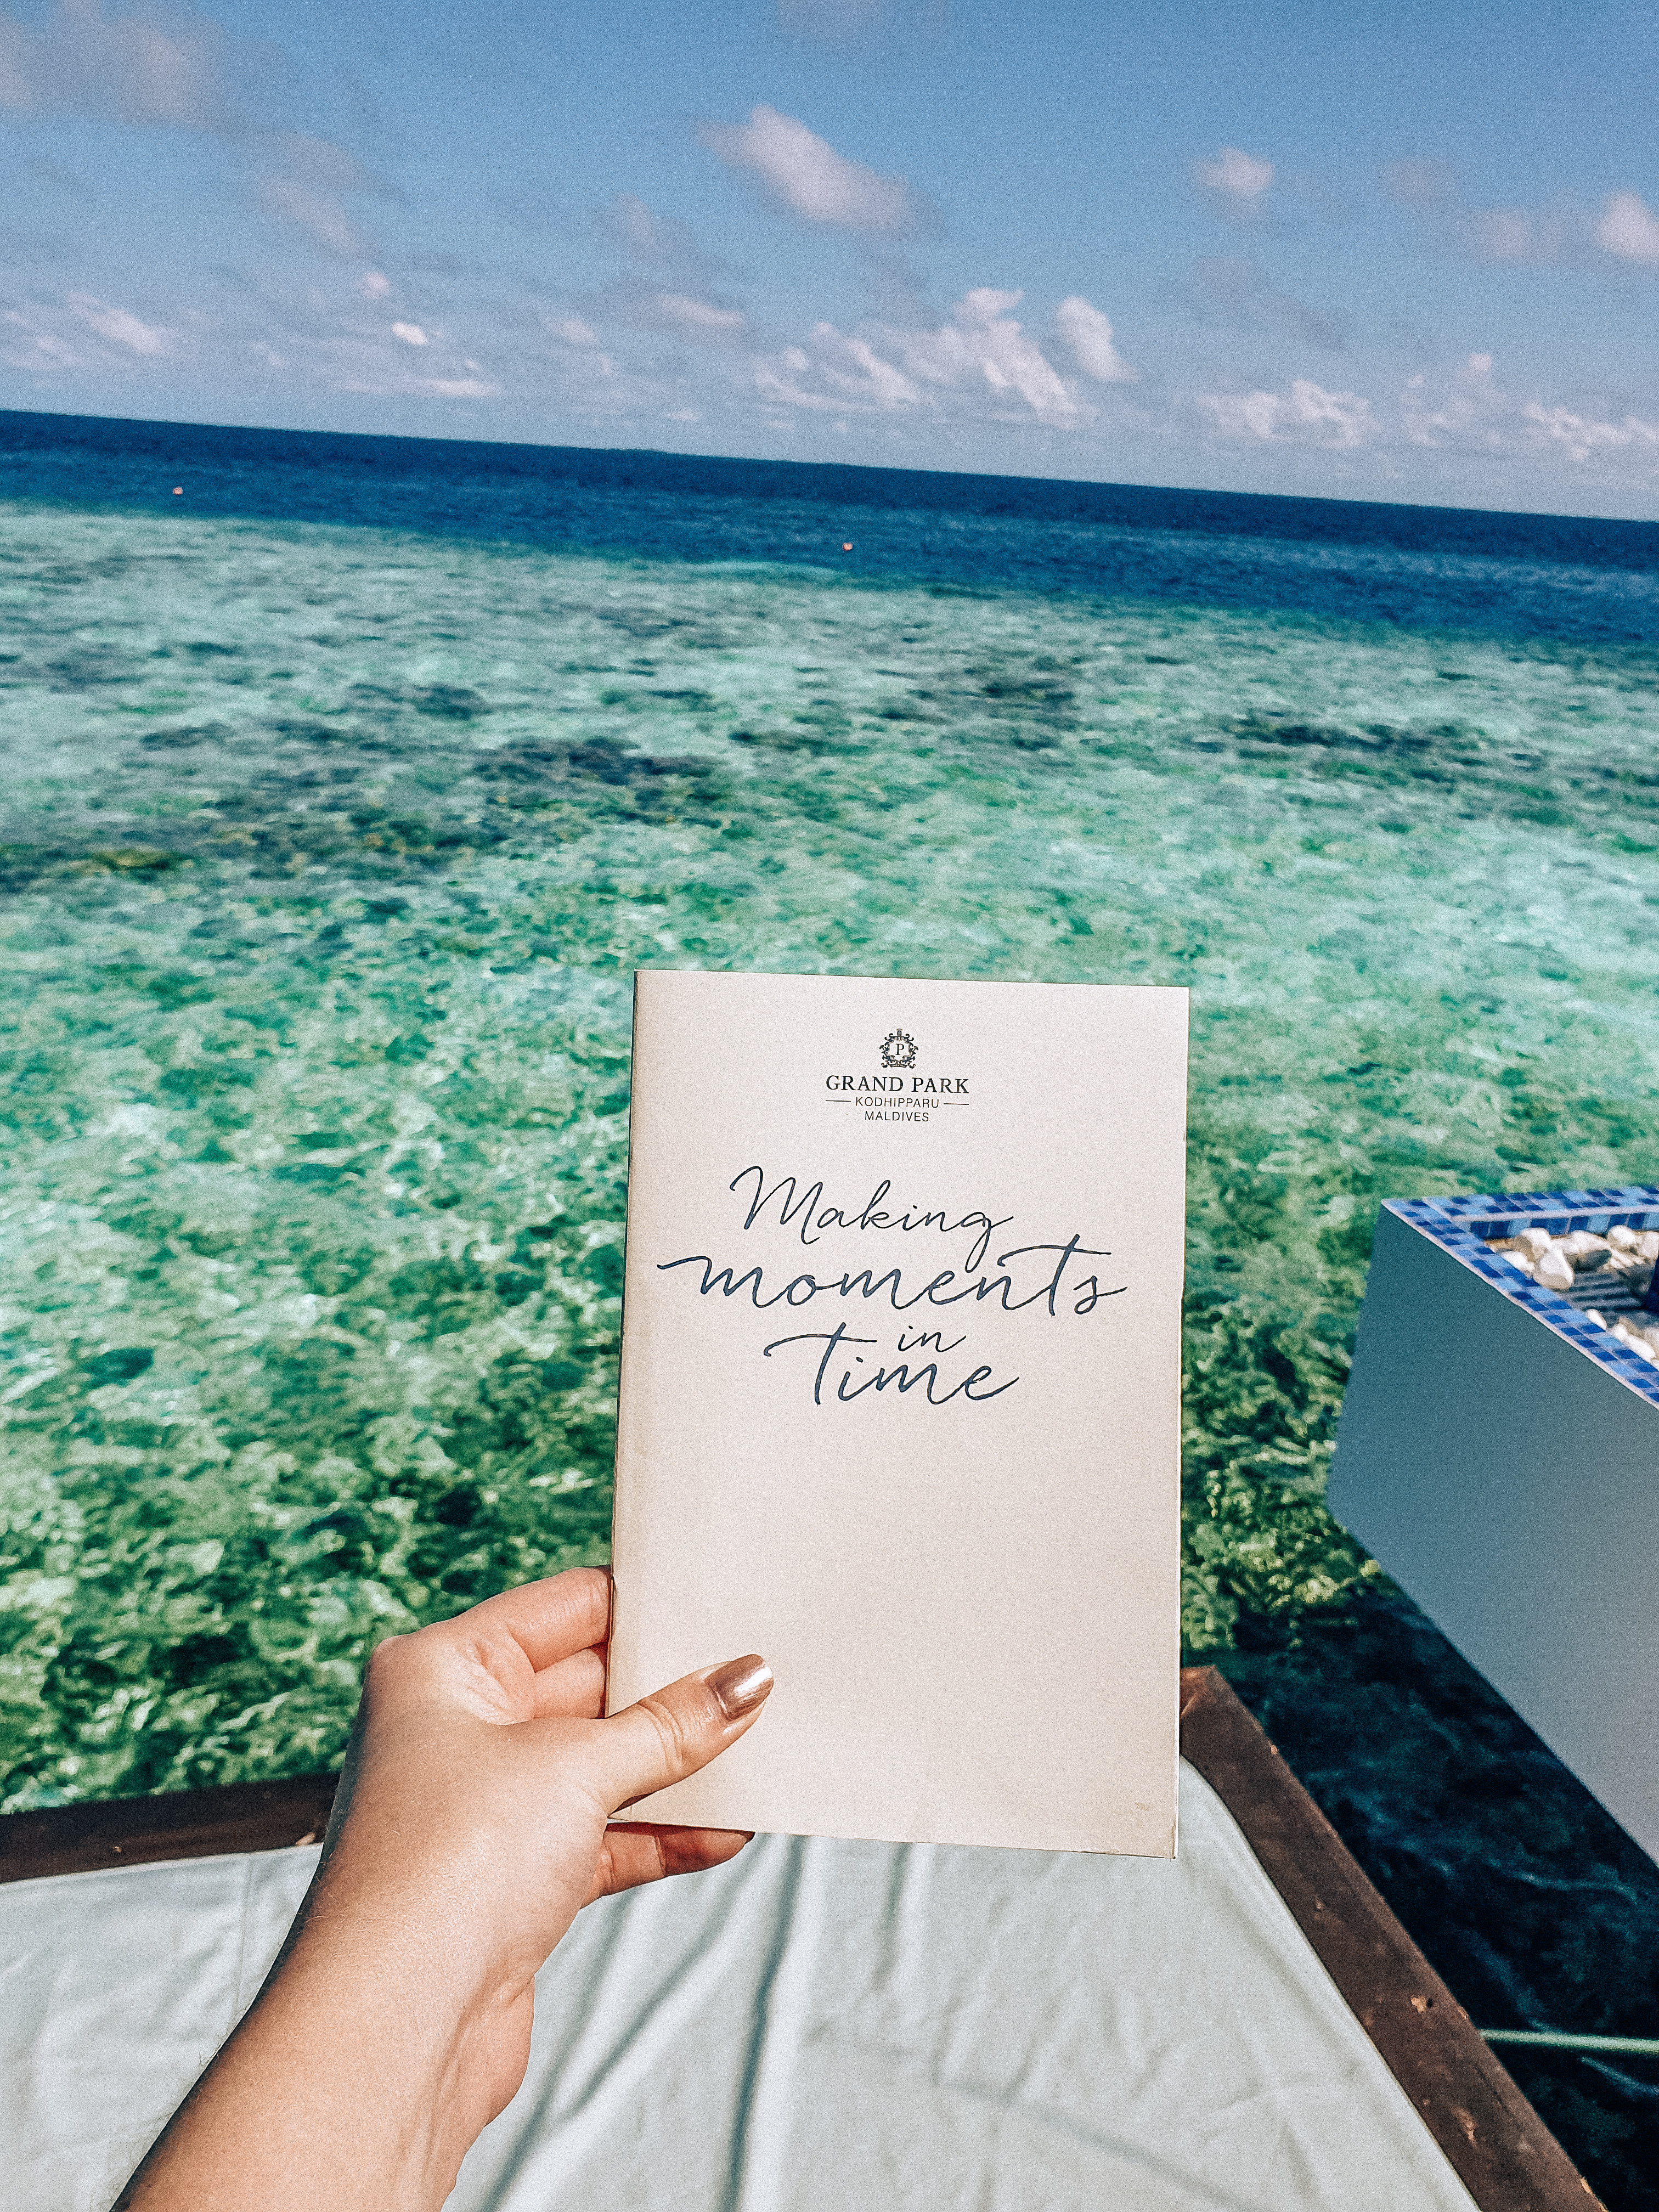 P
GRAND PARK
KODHIPPARU
MALDIVES
Making
moments
in
Time